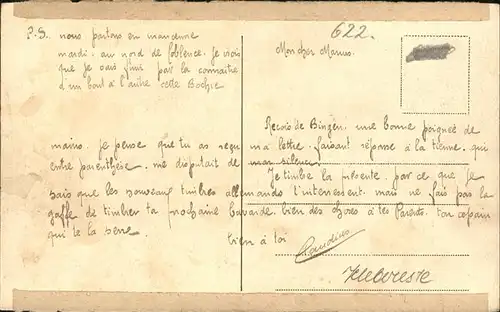 P.S. nous partons en manœuvre
mardi. au nord de Coblence. Je crois
que je vais finir par la connaître
d'un bout à l'autre cette Bochie
622.
Mon cher Manus.
Reçois de Bingen, une bonne poignée de
mains. Je pense que tu as reçu ma lettre, faisant réponse à la tienne, qui
entre parenthèse, me disputait de mon silence!
Je timbre la présente, par ce que je
sais que les nouveaux timbres allemands t'interessent. mais ne fais pas la
gaffe de timbrer ta prochaine bavarde. bien des choses à tes Parents. ton copain
qui te la serre.
bien à toi
Claudius